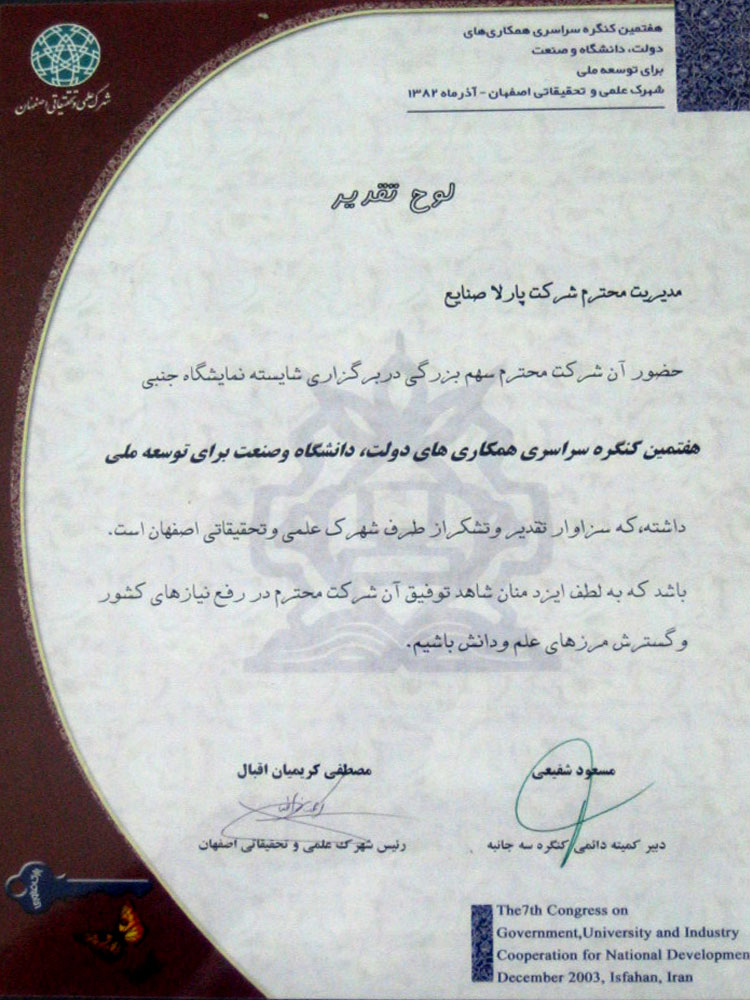 هفتمین کنگره سراسری همکاری‌های
دولت، دانشگاه و صنعت
برای توسعه ملی
شهرک علمی و تحقیقاتی اصفهان - آذرماه ۱۳۸۲
شهرک علمی و تحقیقاتی اصفهان
لوح تقدیر
مدیریت محترم شرکت پارلا صنایع
حضور آن شرکت محترم سهم بزرگی دربرگزاری شایسته نمایشگاه جنبی
هفتمین کنگره سراسری همکاری های دولت، دانشگاه وصنعت برای توسعه ملی
داشته،که سزاوار تقدیر وتشکراز طرف شهرک علمی وتحقیقاتی اصفهان است.
باشد که به لطف ایزد منان شاهد توفیق آن شرکت محترم در رفع نیازهای کشور
وگسترش مرزهای علم ودانش باشیم.
مسعود شفیعی
دبیر کمیته دائمی کنگره سه جانبه
مصطفی کریمیان اقبال
رئیس شهرک علمی و تحقیقاتی اصفهان
The7th Congress on
Government,University and Industry
Cooperation for National Developmen
December 2003, Isfahan, Iran